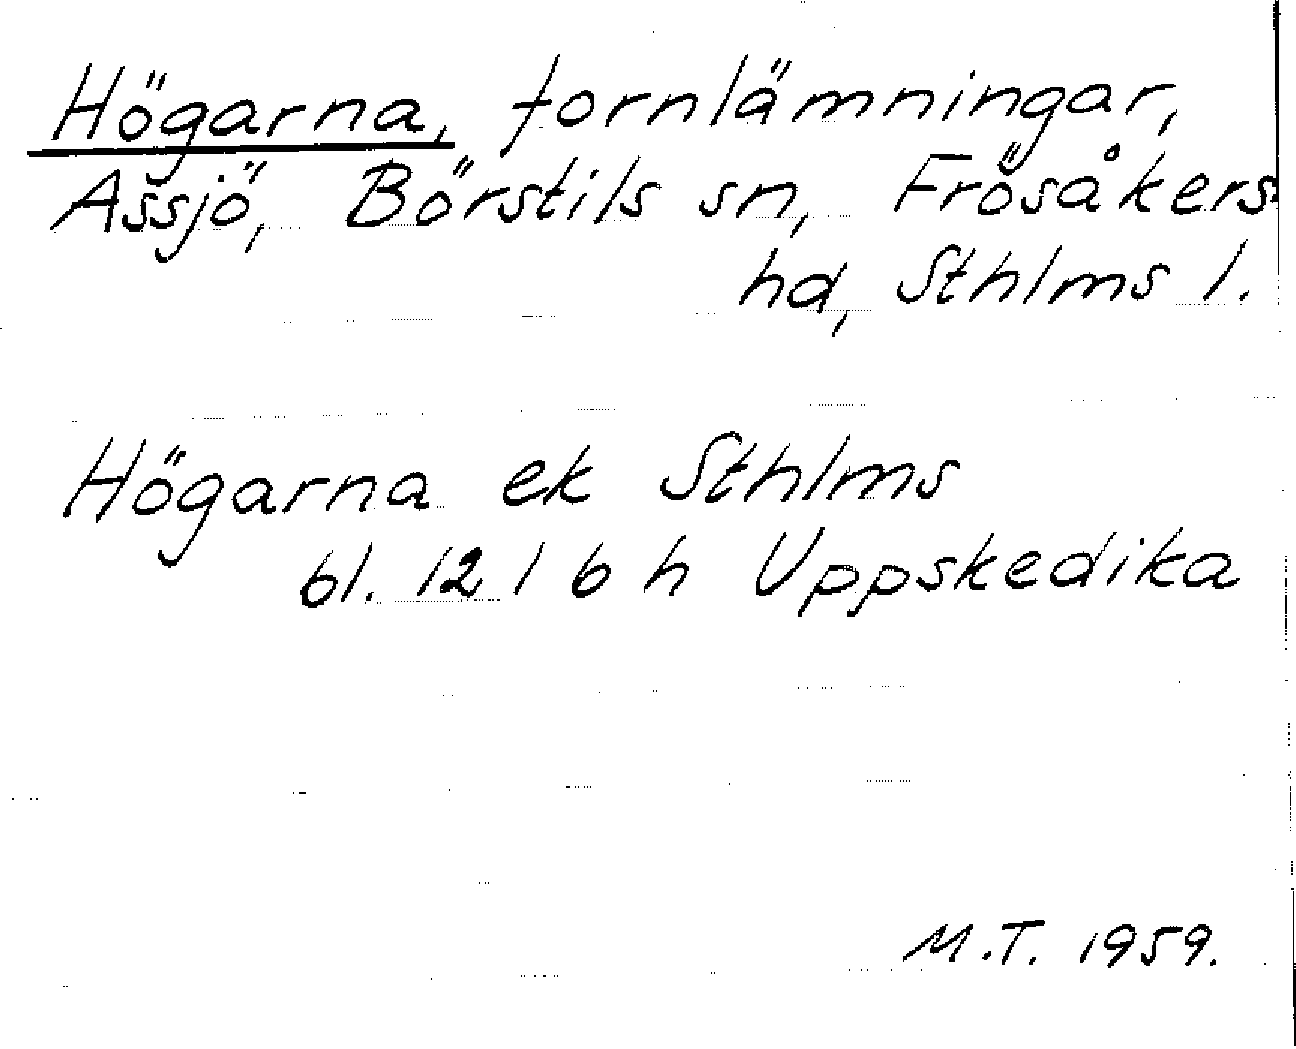 Högarna, fornlämningar,
Assjö, Börstils sn, Frösåkers
hd, Sthlms l.
Högarna ek Sthlms
bl. 12 I 6 h Uppskedika
M.T. 1959.